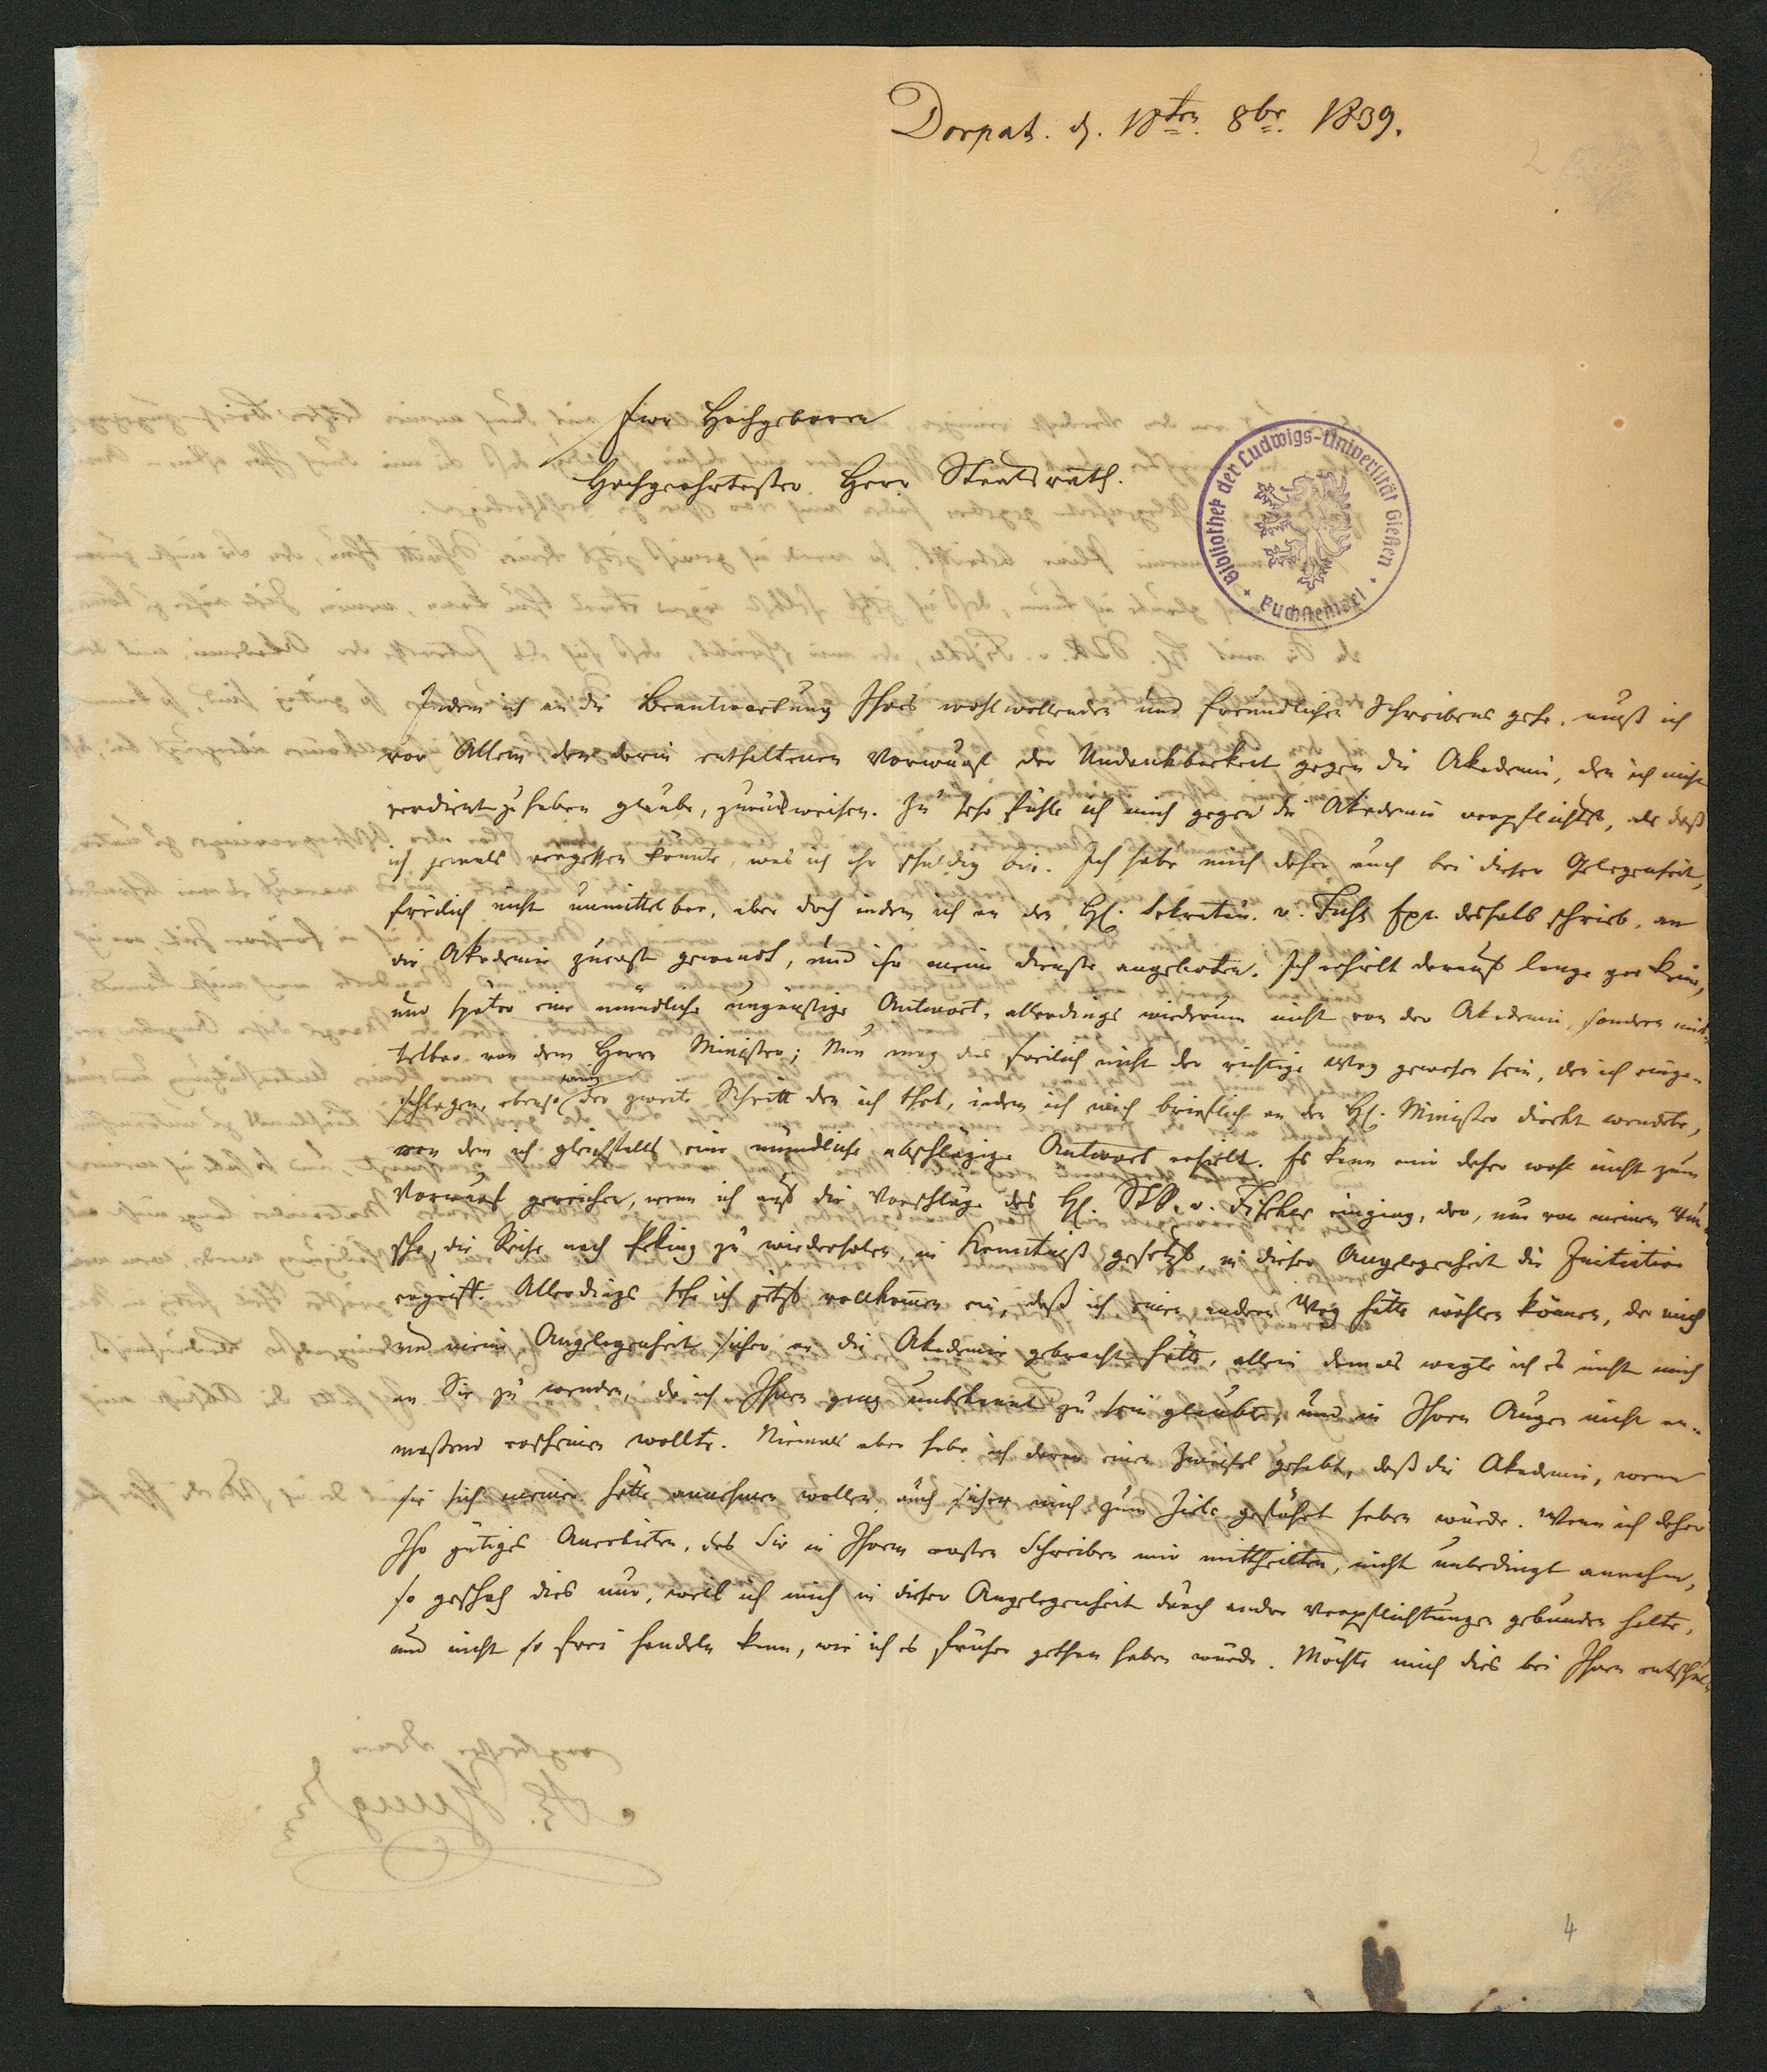 Dorpat. d. 18ten 8br 1839.
2
Ew. Hochgeboren
Hochgeehrtester Herr Staatsrath.
Bibliothek der Ludwigs-Universität Gießen
Buchstempel
Indem ich an die Beantwortung Ihres wohlwollenden und freundlichen Schreibens gehe, muß ich
vor Allem den darin enthaltenen Vorwurf der Undankbarkeit gegen die Akademie, den ich nicht
verdient zu haben glaube, zurückweisen. Zu sehr fühle ich mich gegen die Akademie verpflichtet, als daß
ich jemals vergessen könnte, was ich ihr schuldig bin. Ich habe mich daher auch bei dieser Gelegenheit,
freilich nicht unmittelbar, aber doch indem ich an den H. Sekretär v. Fuß Exc. deshalb schrieb, an
die Akademie zuerst gewandt, und ihr meine Dienste angeboten. Ich erhielt darauf lange gar keine,
und später eine mündliche ungünstige Antwort, allerdings wiederum nicht von der Akademie, sondern mit-
telbar von dem Herrn Minister; Nun mag dies freilich nicht der richtige Weg gewesen sein, den ich einge-
schlagen, ebenso wenig der zweite Schritt den ich that, indem ich mich brieflich an den H. Minister direkt wendete,
von dem ich gleichfalls eine mündliche abschlägige Antwort erhielt. Es kann mir daher wohl nicht zum
Vorwurf gereichen, wenn ich auf die Vorschläge des H. v. Fischer einging, der, nur von meinem Wun-
sche, die Reise nach Peking zu wiederholen, in Kenntniß gesetzt, in dieser Angelegenheit die Initiative
ergriff. Allerdings sehe ich jetzt vollkommen ein, daß ich einen andern Weg hätte wählen können, der mich
und meine Angelegenheit sicher an die Akademie gebracht hätte, allein damals wagte ich es nicht mich
an Sie zu wenden, da ich Ihnen ganz unbekannt zu sein glaubte, und in Ihren Augen nicht an-
maßend erscheinen wollte. Niemals aber habe ich daran einen Zweifel gehabt, daß die Akademie, wenn
sie sich meiner hätte annehmen wollen, auch sicher mich zum Ziele geführt haben würde. Wenn ich daher
Ihr gütiges Anerbieten, das Sie in Ihrem ersten Schreiben mir mittheilten, nicht unbedingt annahm,
so geschah dies nur, weil ich mich in dieser Angelegenheit durch andre Verpflichtungen gebunden halte,
und nicht so frei handeln kann, wie ich es früher gethan haben würde. Möchte mich dies bei Ihnen entschul-
4